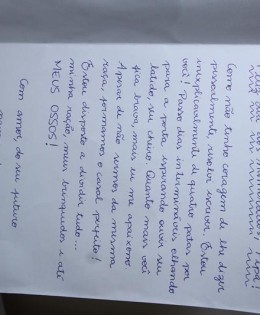 Como não tenho coragem de lhe dizer
pessoalmente, resolvi escrever. Estou
inexplicavelmente de quatro patas por
você! Passo dias intermináveis olhando
para a porta esperando ouvir seu
latido, seu cheiro. Quanto mais você
fica brava, mais eu me apaixono
Apesar de não sermos da mesma
raça, formamos o casal perfeito!
Estou disposto a dividir tudo...
minha ração, meus brinquedos e até
MEUS OSSOS!
Com amor, do seu futuro